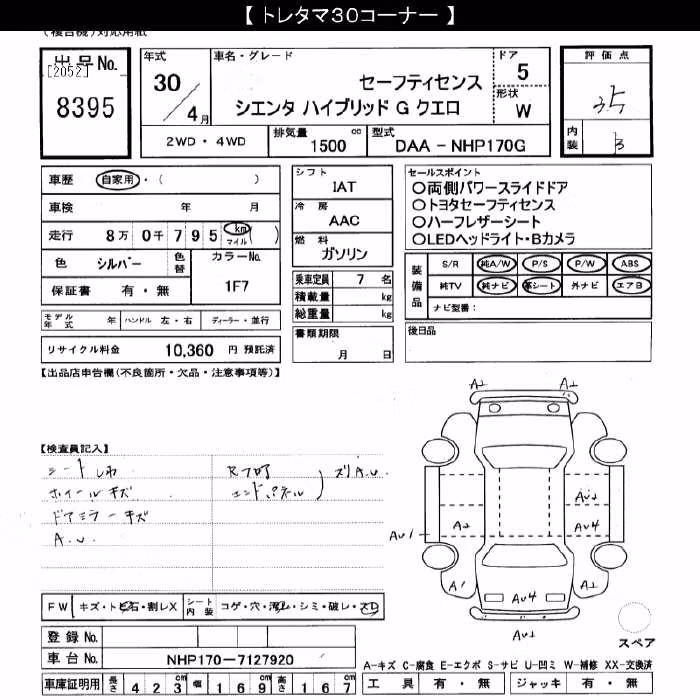 【 トレタマ30コーナー 】
(複合機)対応用紙
出品No.
[2052]
8395
年式
30
4月
車名・グレード
セーフティセンス
シエンタ ハイブリッド G クエロ
ドア
5
形状
W
評価点
3.5
内装
B
2WD ・ 4WD
排気量
1500 cc
型式
DAA - NHP170G
車歴 自家用・( )
車検 年 月
走行 8万 0千 7 9 5 km マイル ( )
色 シルバー 色替
カラーNo.
1F7
保証書 有・無
シフト
IAT
冷房
AAC
燃料
ガソリン
乗車定員 7 名
積載量 kg
総重量 kg
セールスポイント
○両側パワースライドドア
○トヨタセーフティセンス
○ハーフレザーシート
○LEDヘッドライト・Bカメラ
装備品
S/R 純A/W P/S P/W ABS
純TV 純ナビ 革シート 外ナビ エアB
ナビ型番:
モデル年式 年 ハンドル 左・右 ディーラー・並行
リサイクル料金 10,360 円 預託済
書類期限
月 日
後日品
【出品店申告欄(不良箇所・欠品・注意事項等)】
【検査員記入】
シートしわ
ホイールキズ
ドアミラーキズ
A.U.
Rフロア
エンドパネル
ズリA.U.
A2 A2
AU2
A2 AU4
AU1
A1 AU4 A2
AU2
スペア
FW キズ・トビ石・割レX
シート内装 コゲ・穴・汚レ・シミ・破レ・スレ
登録No.
車台No. NHP170-7127920
車庫証明用 長さ 4 2 3 cm 幅 1 6 9 cm 高さ 1 6 7 cm
A-キズ C-腐食 E-エクボ S-サビ U-凹ミ W-補修 XX-交換済
工具 有・無 ジャッキ 有・無